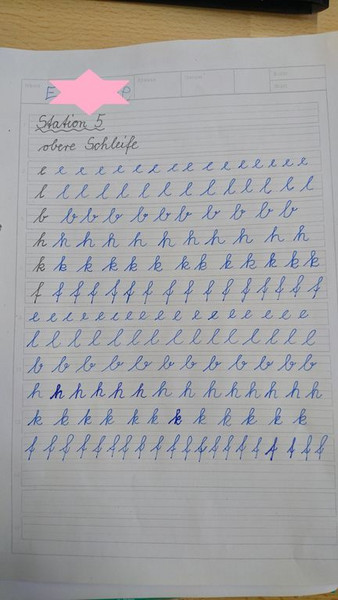 Station 5
obere Schleife
e e e e e e e e e e e e e e e e
l l l l l l l l l l l l l l
b b b b b b b b b b b
h h h h h h h h h h h
k k k k k k k k k k k k k
f f f f f f f f f f f f f f f f
e e e e e e e e e e e e e e e e e e
l l l l l l l l l l l l l l l
b b b b b b b b b b b b
h h h h h h h h h h h h h h
k k k k k k k k k k k k
f f f f f f f f f f f f f f f f f f f f